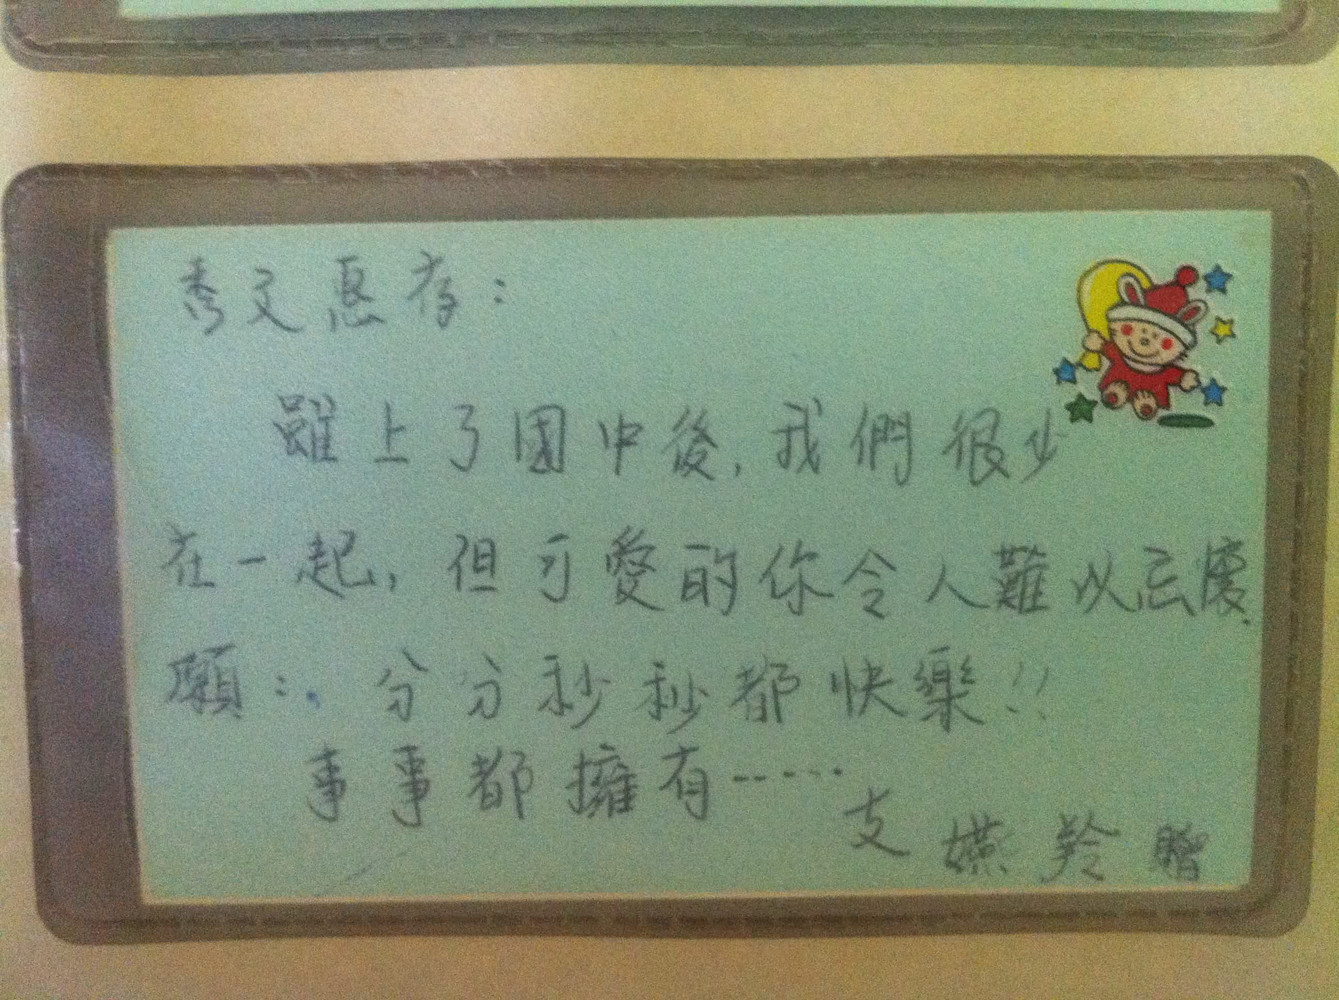 秀文惠存：
雖上了國中後，我們很少
在一起，但可愛的你令人難以忘懷.
願：. 分分秒秒都快樂!!
事事都擁有……
友 嬿羚 贈